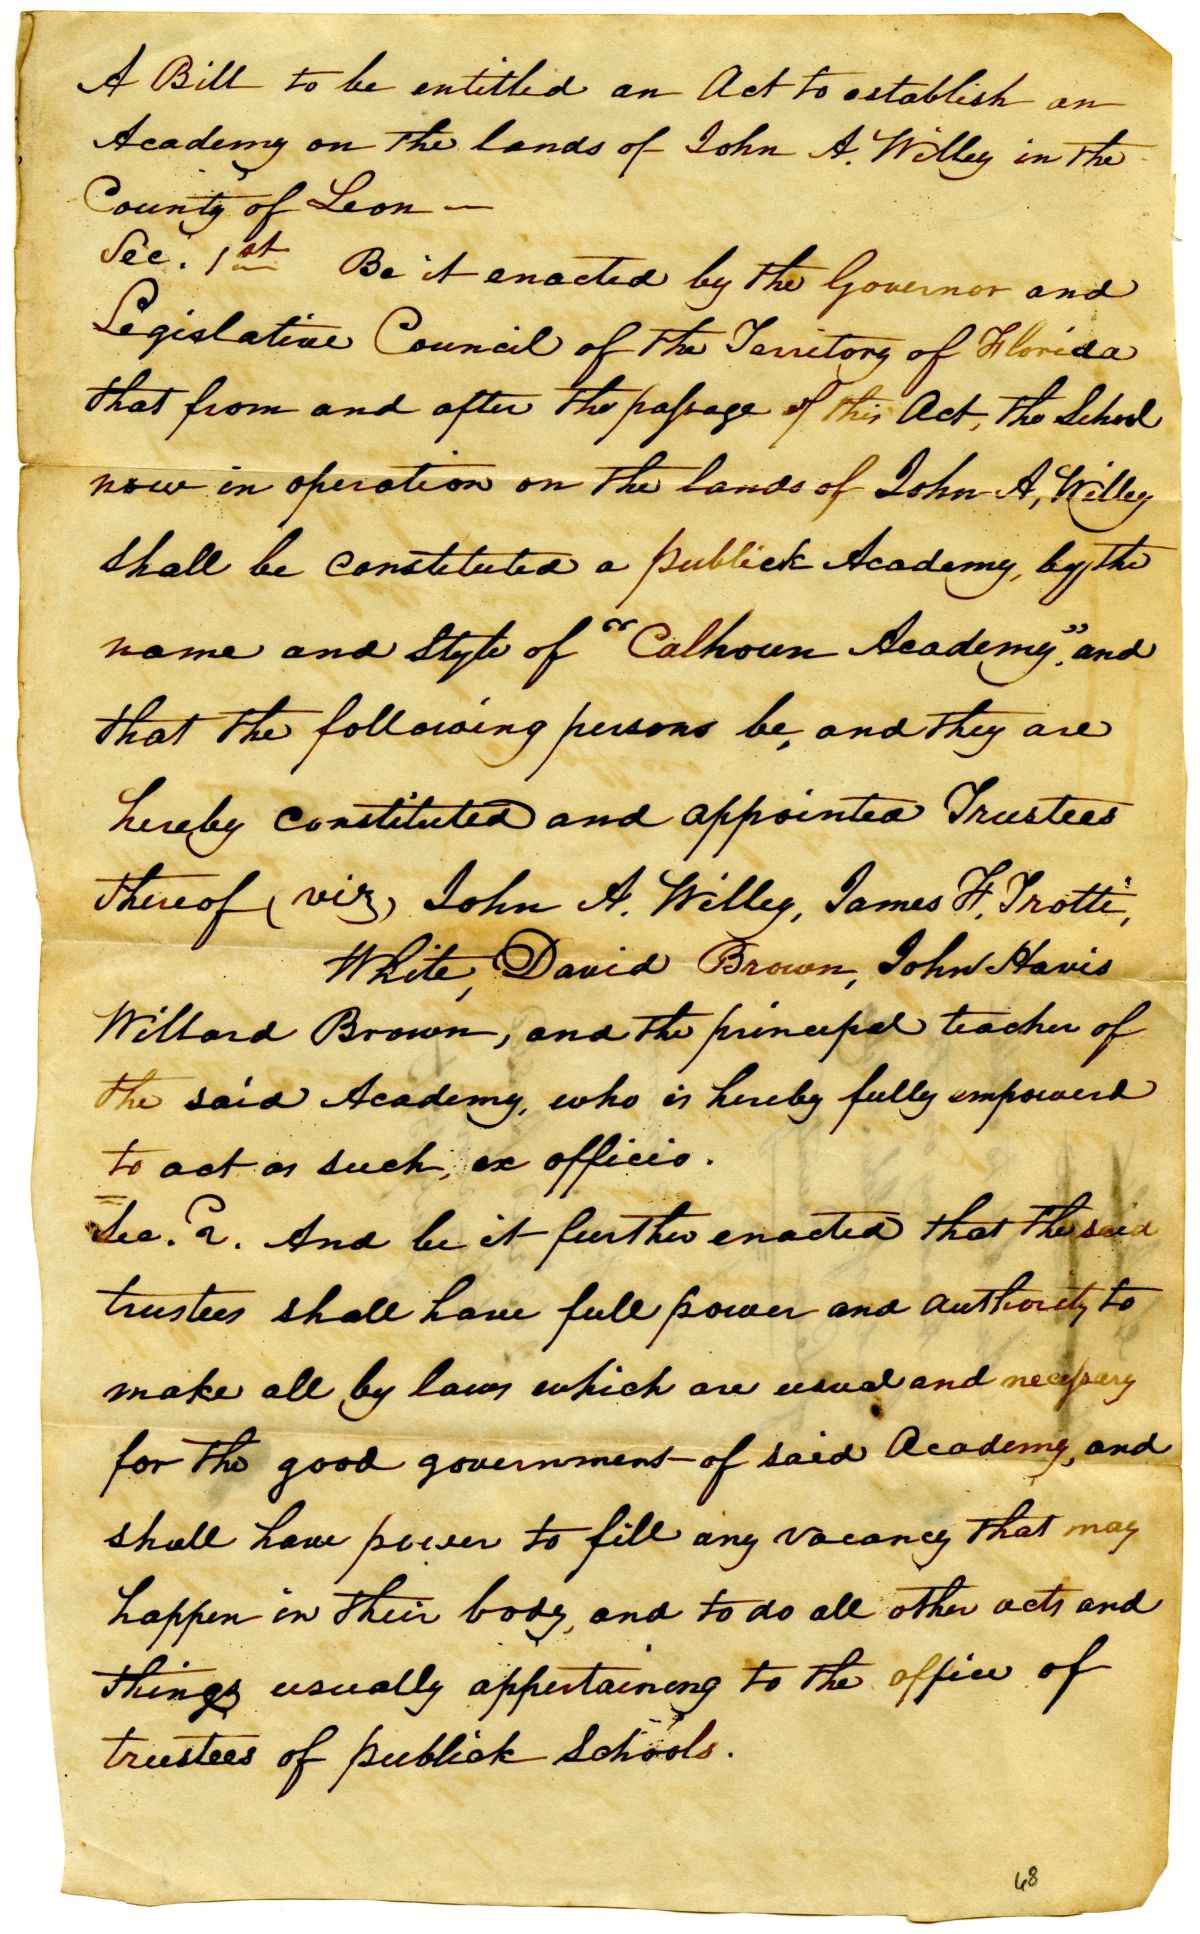 A Bill to be entitled an Act to establish an
Academy on the lands of John A. Willey in the
County of Leon —
Sec. 1st Be it enacted by the Governor and
Legislative Council of the Territory of Florida
that from and after the passage of this Act, the School
now in operation on the lands of John A. Willey
shall be constituted a publick Academy, by the
name and Style of "Calhoun Academy", and
that the following persons be, and they are
hereby constituted and appointed Trustees
thereof (viz) John A. Willey, James F. Trotti,
White, David Brown, John Havis
Willard Brown, and the principal teacher of
the said Academy, who is hereby fully empowerd
to act as such, ex officio.
Sec. 2. And be it further enacted that the said
trustees shall have full power and authority to
make all by laws which are usual and necessary
for the good government of said Academy, and
shall have power to fill any vacancy that may
happen in their body, and to do all other acts and
things usually appertaining to the office of
trustees of publick Schools.
68